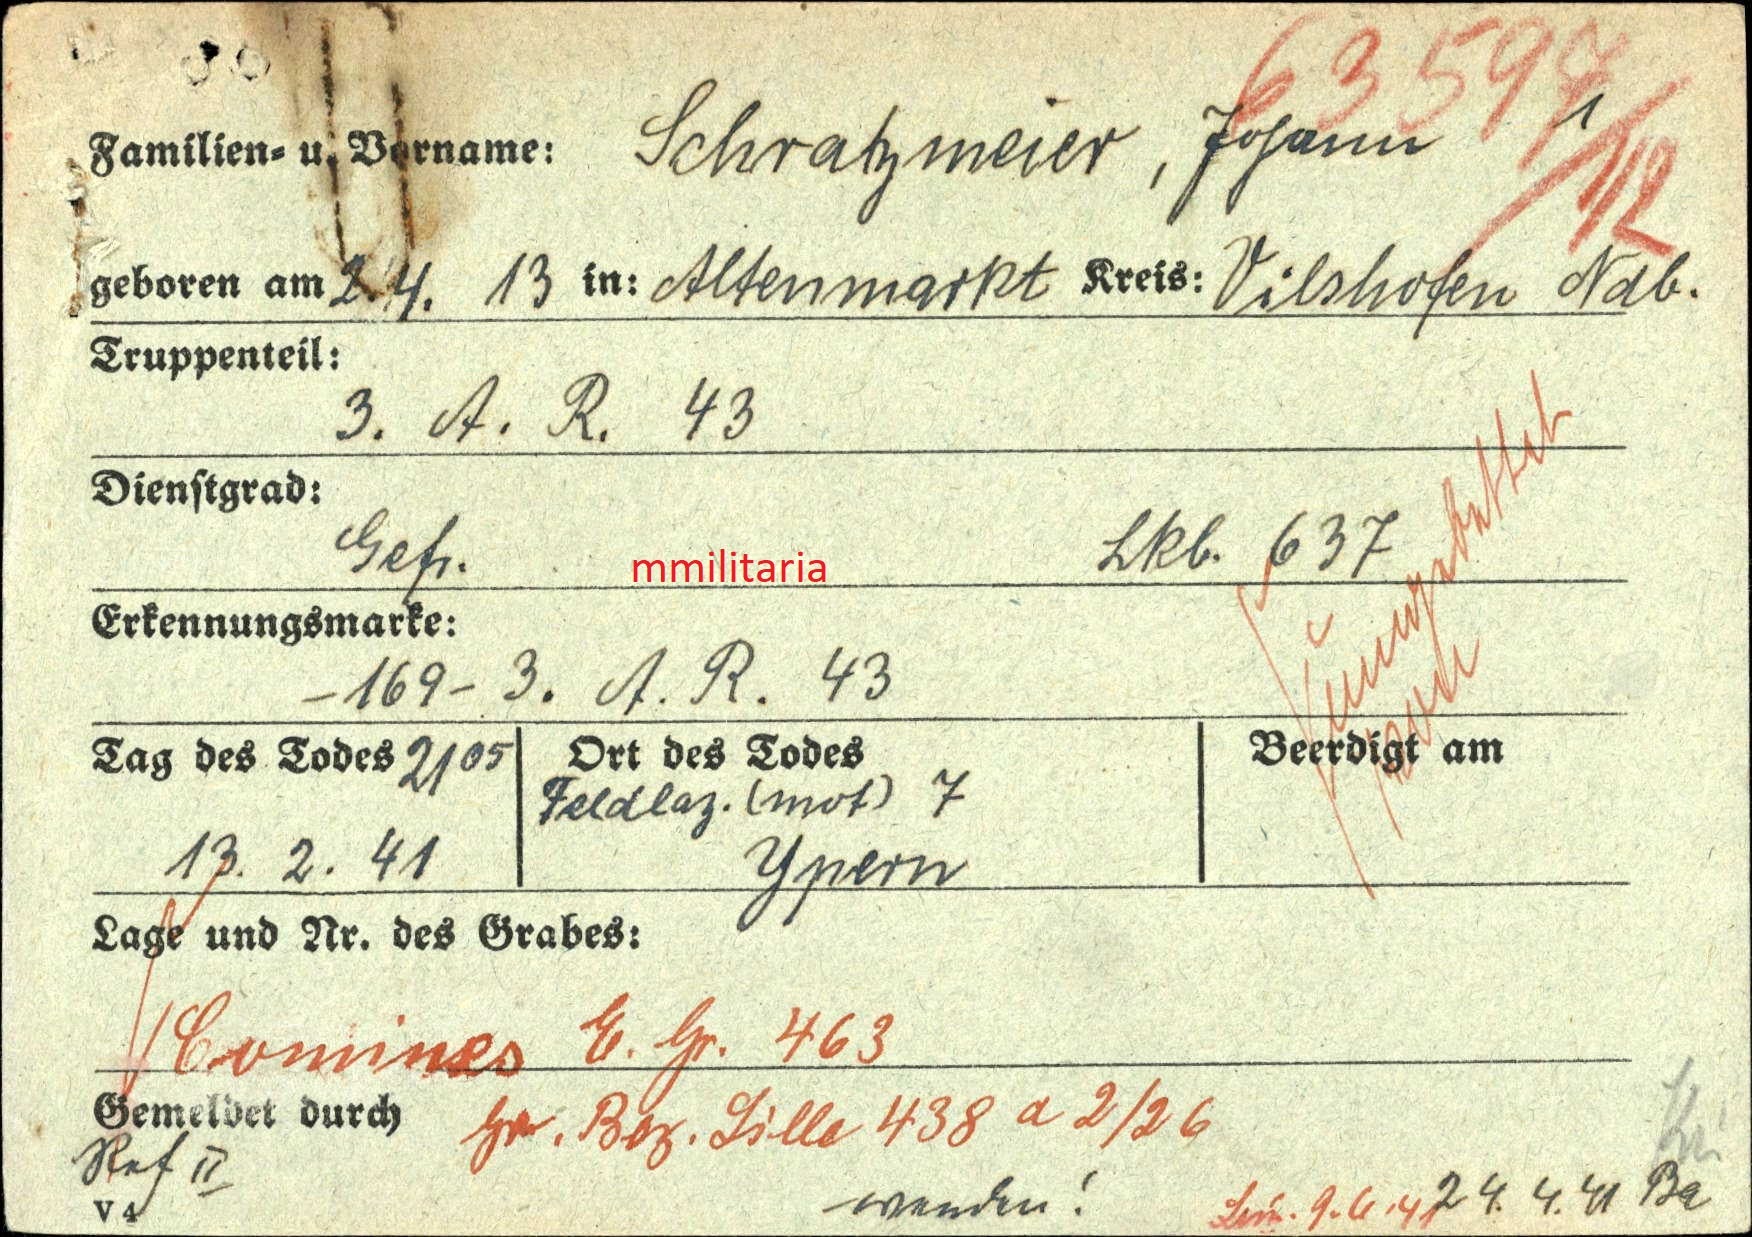 63597
/112
Familien- u. Vorname: Schratzmeier, Johann
geboren am 2.4. 13 in: Altenmarkt Kreis: Vilshofen Ndb.
Truppenteil:
3. A. R. 43
Dienstgrad:
Gefr. Lkb. 637
mmilitaria
Erkennungsmarke:
-169- 3. A. R. 43
Tag des Todes 21 05 Ort des Todes Beerdigt am
Feldlaz. (mot) 7
13. 2. 41 Ypern
Lage und Nr. des Grabes:
Comines E. Gr. 463
Gemeldet durch Gr. Bez. Lille 438 a 2/26
Ref II
wenden!
V 4
9.6.41 24. 4. 41 Ba